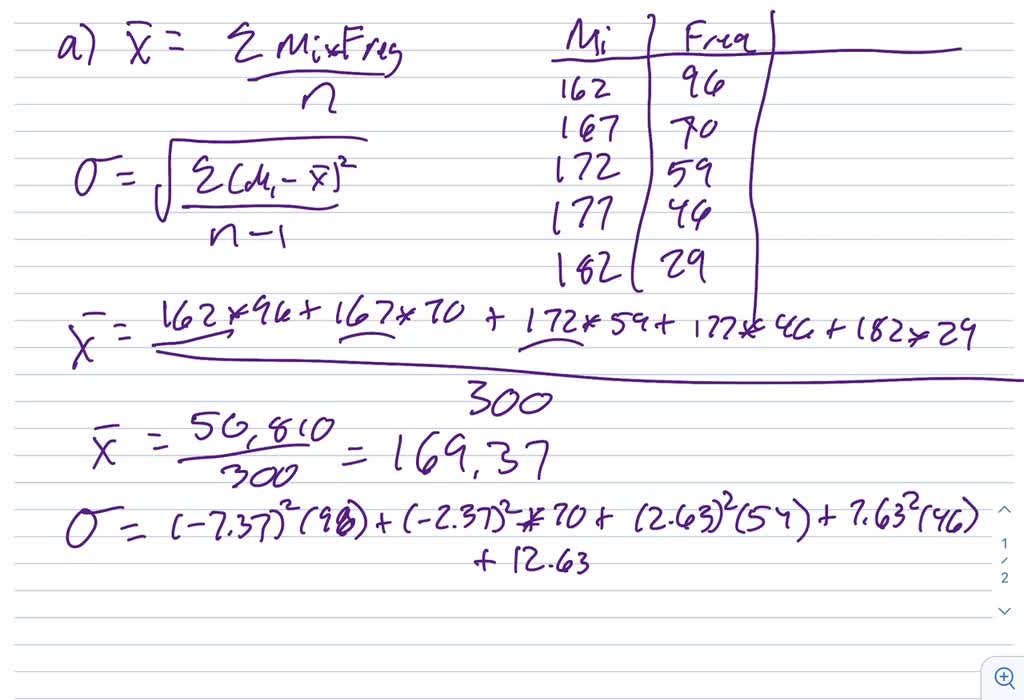 a) x̄ = Σ Mi×Freq / n
Mi Freq
162 96
167 70
172 59
177 46
182 29
σ = √(Σ(Mi - x̄)² / n-1)
x̄ = 162*96 + 167*70 + 172*59 + 177*46 + 182*29 / 300
x̄ = 50,810 / 300 = 169.37
σ = (-7.37)²(98) + (-2.37)² * 70 + (2.63)²(54) + 7.63²(46)
+ 12.63
1
/
2